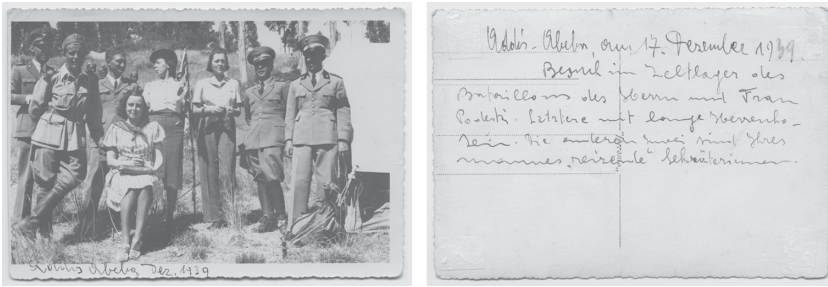 Addis Abeba, Dez. 1939
Addis-Abeba, am 17. Dezember 1939.
Besuch im Zeltlager des
Bataillons des Herrn und Frau
Podestà. Letztere mit lange Herrenho-
sein. Die anderen zwei sind Ihres
mannes „reizende" Sekretärinnen.